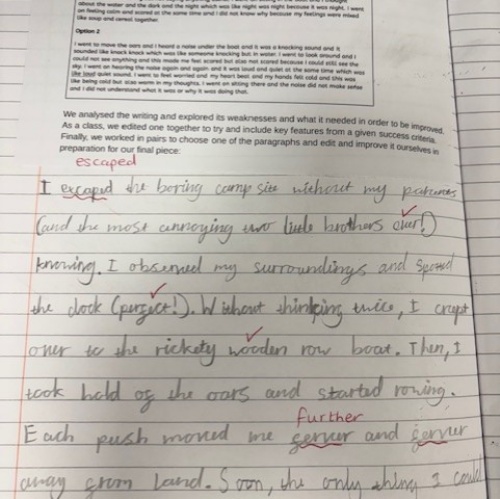 about the water and the dark and the night which was like night was night because it was night. I went
on feeling calm and scared at the same time and I did not know why because my feelings were mixed
like soup and cereal together.
Option 2
I went to move the oars and I heard a noise under the boat and it was a knocking sound and it
sounded like knock knock which was like someone knocking but in water. I went to look around and I
could not see anything and this made me feel scared but also not scared because I could still see the
sky. I went on hearing the noise again and again and it was loud and quiet at the same time which was
like loud quiet sound. I went to feel worried and my heart beat and my hands felt cold and this was
like being cold but also warm in my thoughts. I went on sitting there and the noise did not make sense
and I did not understand what it was or why it was doing that.
We analysed the writing and explored its weaknesses and what it needed in order to be improved.
As a class, we edited one together to try and include key features from a given success criteria.
Finally, we worked in pairs to choose one of the paragraphs and edit and improve it ourselves in
preparation for our final piece:
escaped
I excaped the boring camp site without my parents
(and the most annoying two little brothers ever!)
knowing. I observed my surroundings and spotted
the dock (perfect!). Without thinking twice, I crept
over to the rickety wooden row boat. Then, I
took hold of the oars and started rowing.
further
Each push moved me ferver and ferver
away from land. Soon, the only thing I could